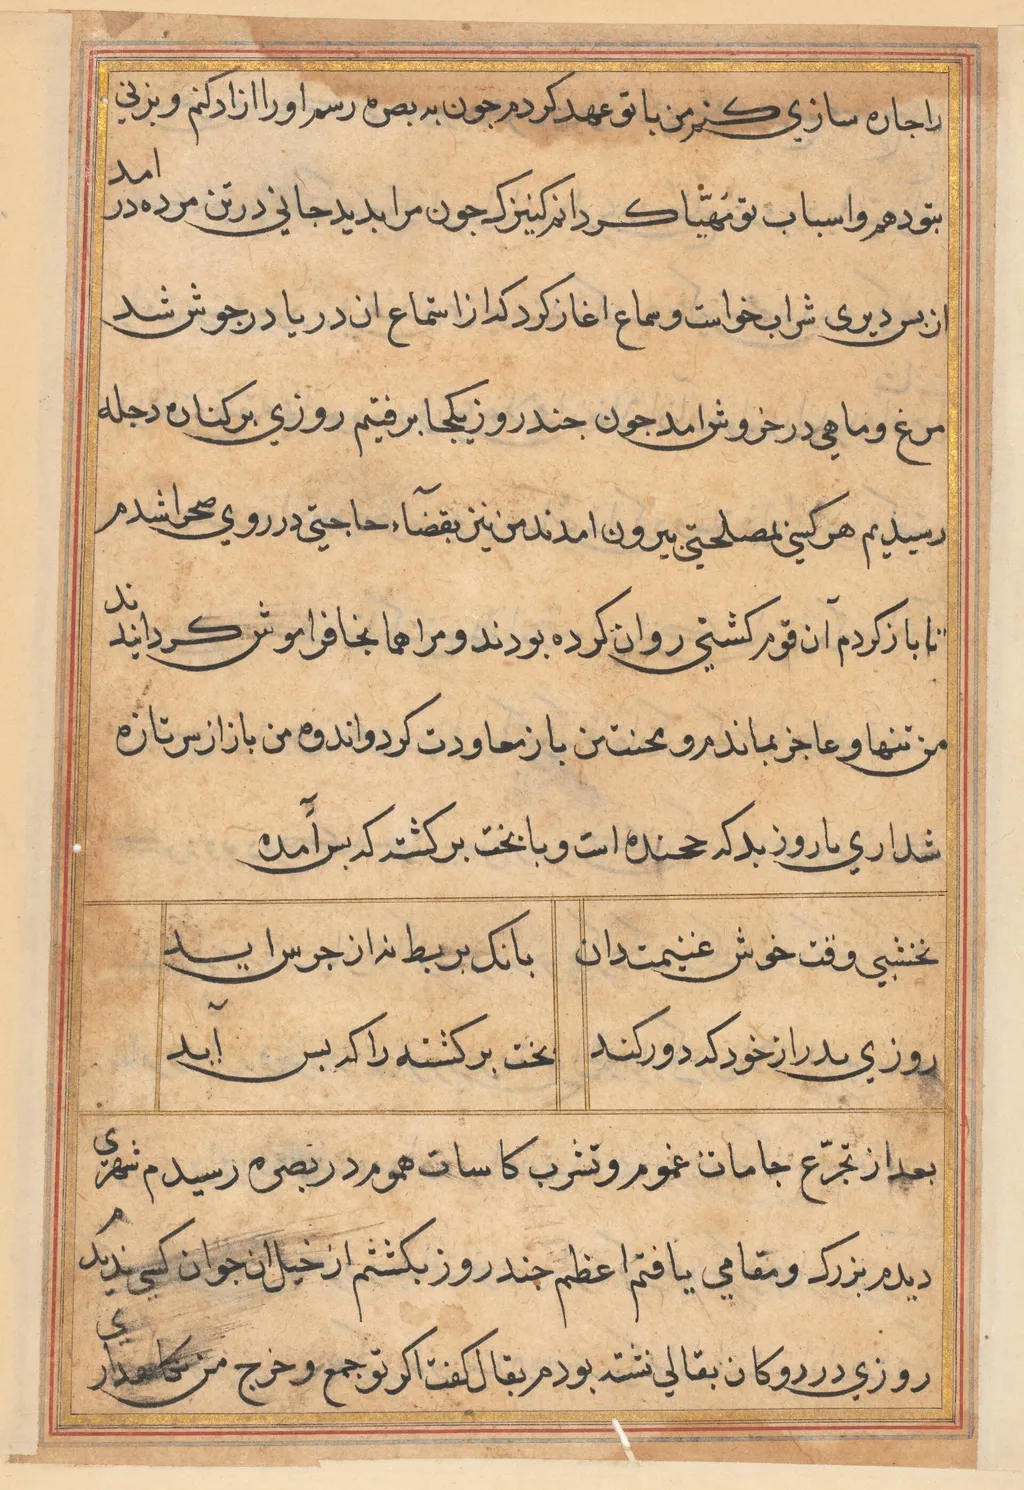 راجاره سازي كنم من با تو عهد كردم جون به بصره رسم او را ازاد كنم و بزني
بتو دهم و اسباب تو مُهَيَّا كردانم كنيزك جون مرا بديد جاني در تن مرده در امد
از بس ديري شراب خواست و سماع اغاز كرد كه از استماع ان دريا در جوش شد
مرغ و ماهي در خروش امد جون جند روز يكجا برفتيم روزي بر كناره دجله
رسيديم هر كسي بمصلحتي بيرون امدند من نيز بقضآء حاجتي در روي صحرا شدم
تا باز كردم آن قوم كشتي روان كرده بودند و مرا همانجا فراموش كردانيدند
من تنها و عاجز بماندم و محنت من باز معاودت كرد و اندوه من باز از سر تازه
شد اري با روز بد كه جخنده است و با بخت بر كشته كه بس آمده
نخشبي وقت خوش غنيمت دان
بانك بربط نه از جرس ايد
روزي بد را از خود كه دور كند
بخت بر كشته را كه بس آيد
بعد از تجرّع جامات غموم و تشرب كاسات هموم در بصره رسيدم شهري
ديدم بزرك و مقامي يافتم اعظم جند روز بكشتم از خيل ان جوان كسي نديدم
روزي در دوكان بقالي نشته بودم بقال كفت اكر تو جمع و خرج من